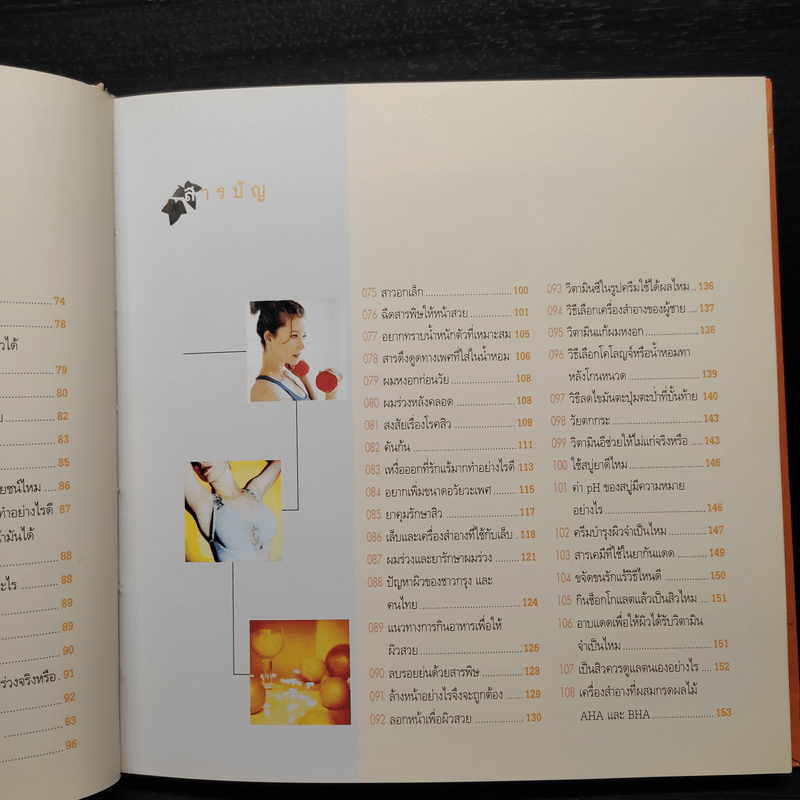 74
78
วได้
79
80
82
83
85
ยชน์ไหม .... 86
ทำอย่างไรดี 87
น้ำมันได้
88
ะไร ........... 88
89
89
90
ร่วงจริงหรือ . 91
92
93
96
สารบัญ
075 สาวอกเล็ก ........................... 100
076 ฉีดสารพิษให้หน้าสวย .............. 101
077 อยากทราบน้ำหนักตัวที่เหมาะสม 105
078 สารดึงดูดทางเพศที่ใส่ในน้ำหอม 106
079 ผมหงอกก่อนวัย ..................... 108
080 ผมร่วงหลังคลอด ................... 108
081 สงสัยเรื่องโรคสิว .................... 109
082 คันก้น ................................. 111
083 เหงื่อออกที่รักแร้มากทำอย่างไรดี 113
084 อยากเพิ่มขนาดอวัยวะเพศ ....... 115
085 ยาคุมรักษาสิว ....................... 117
086 เล็บและเครื่องสำอางที่ใช้กับเล็บ . 118
087 ผมร่วงและยารักษาผมร่วง ........ 121
088 ปัญหาผิวของชาวกรุง และ
คนไทย ................................ 124
089 แนวทางการกินอาหารเพื่อให้
ผิวสวย ................................ 126
090 ลบรอยย่นด้วยสารพิษ ............. 128
091 ล้างหน้าอย่างไรจึงจะถูกต้อง ..... 129
092 ลอกหน้าเพื่อผิวสวย ................ 130
093 วิตามินซีในรูปครีมใช้ได้ผลไหม .. 136
094 วิธีเลือกเครื่องสำอางของผู้ชาย ... 137
095 วิตามินแก้ผมหงอก ................. 138
096 วิธีเลือกโคโลญจ์หรือน้ำหอมทา
หลังโกนหนวด ....................... 139
097 วิธีลดไขมันตะปุ่มตะป่ำที่บั้นท้าย 140
098 วัยตกกระ ............................. 143
099 วิตามินอีช่วยให้ไม่แก่จริงหรือ .... 143
100 ใช้สบู่ยาดีไหม ....................... 146
101 ค่า pH ของสบู่มีความหมาย
อย่างไร ................................ 146
102 ครีมบำรุงผิวจำเป็นไหม ............ 147
103 สารเคมีที่ใช้ในยากันแดด .......... 149
104 ขจัดขนรักแร้วิธีไหนดี .............. 150
105 กินช็อกโกแลตแล้วเป็นสิวไหม ... 151
106 อาบแดดเพื่อให้ผิวได้รับวิตามิน
จำเป็นไหม ........................... 151
107 เป็นสิวควรดูแลตนเองอย่างไร .... 152
108 เครื่องสำอางที่ผสมกรดผลไม้
AHA และ BHA ..................... 153